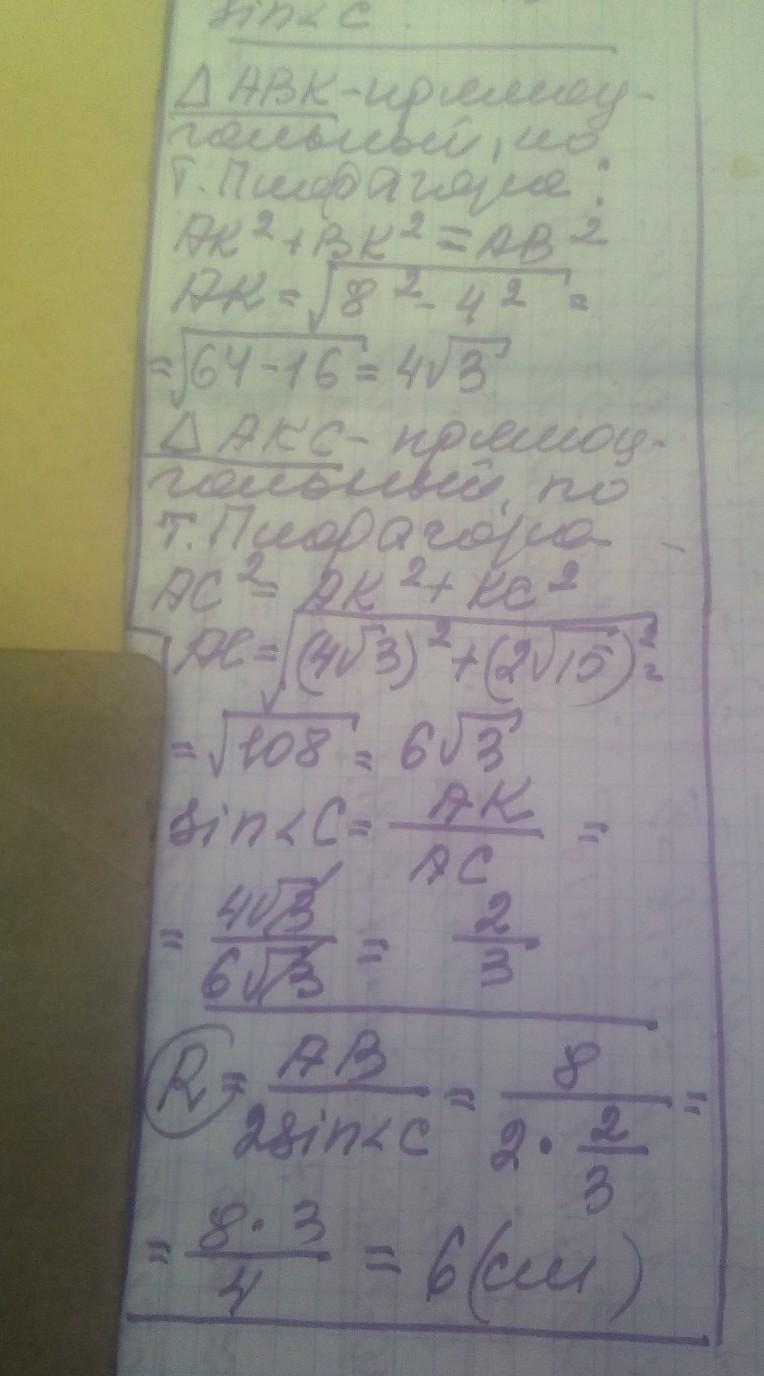 sin∠C
△ABK - прямоу-
гольный, по
т. Пифагора:
AK² + BK² = AB²
AK = √(8² - 4²) =
= √(64 - 16) = 4√3
△AKC - прямоу-
гольный, по
т. Пифагора
AC² = AK² + KC²
AC = √((4√3)² + (2√15)²) =
= √108 = 6√3
sin∠C = AK/AC =
= 4√3/6√3 = 2/3
R = AB/2sin∠C = 8/(2·2/3) =
= 8·3/4 = 6 (см)